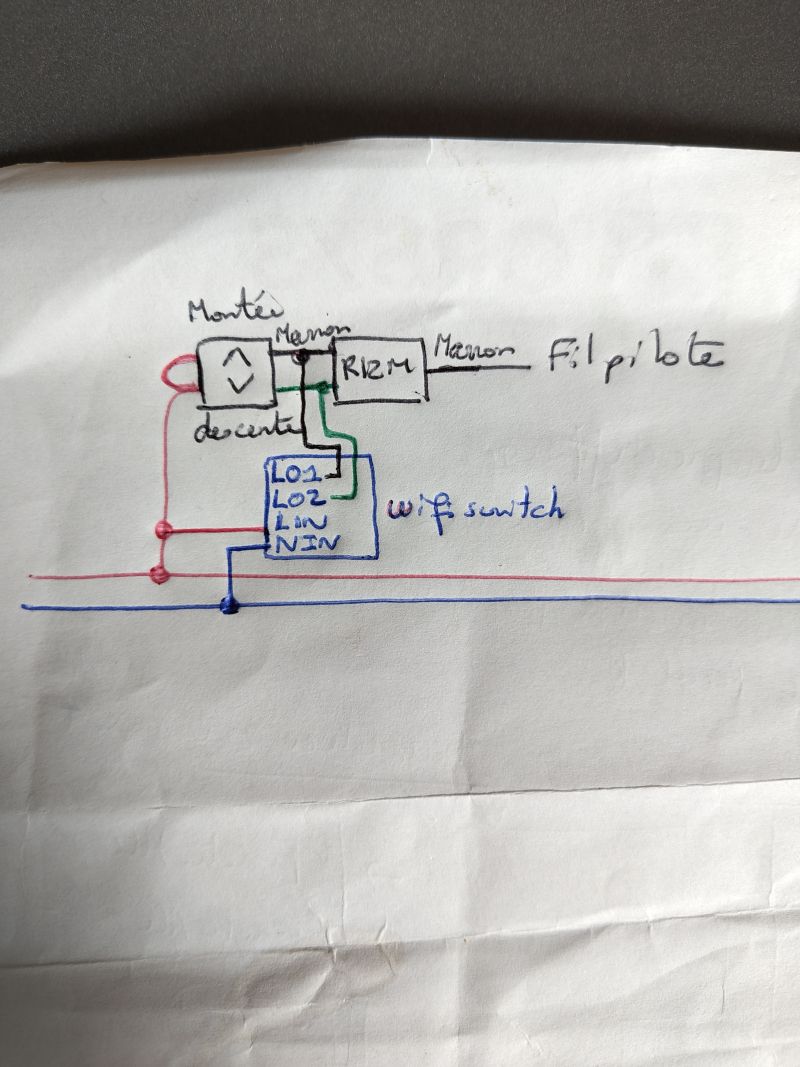 Montée
Marron
Marron
Fil pilote
R12M
descente
LO1
LO2
LIN
NIN
wifi switch